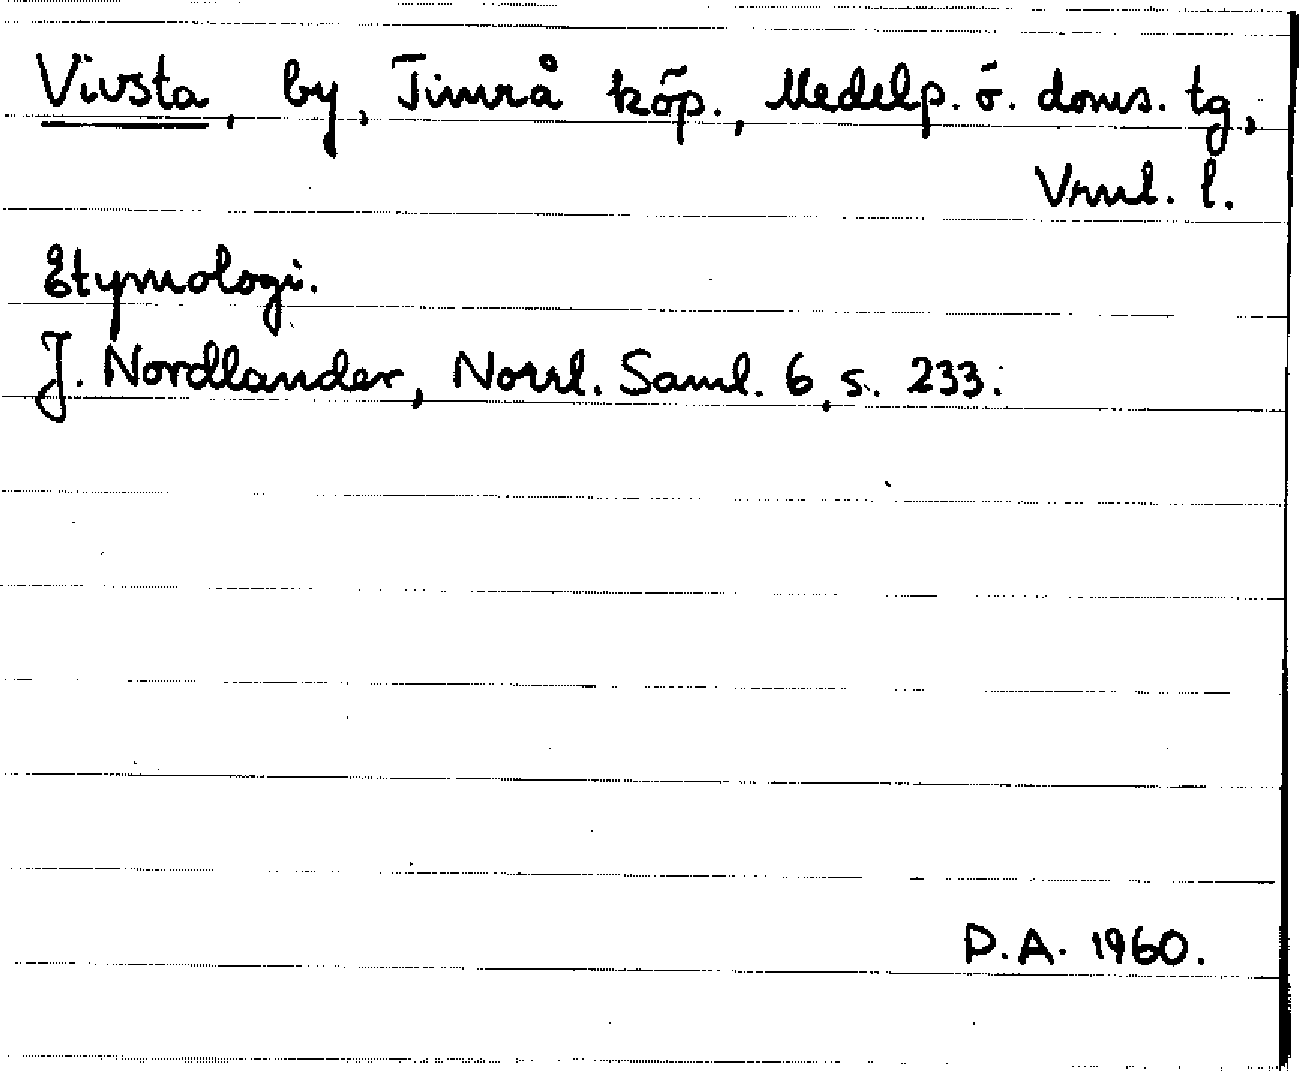 Vivsta, by, Timrå köp., Medelp. ö. doms. tg,
Vrnl. l.
Etymologi.
J. Nordlander, Norrl. Saml. 6, s. 233.
D.A. 1960.